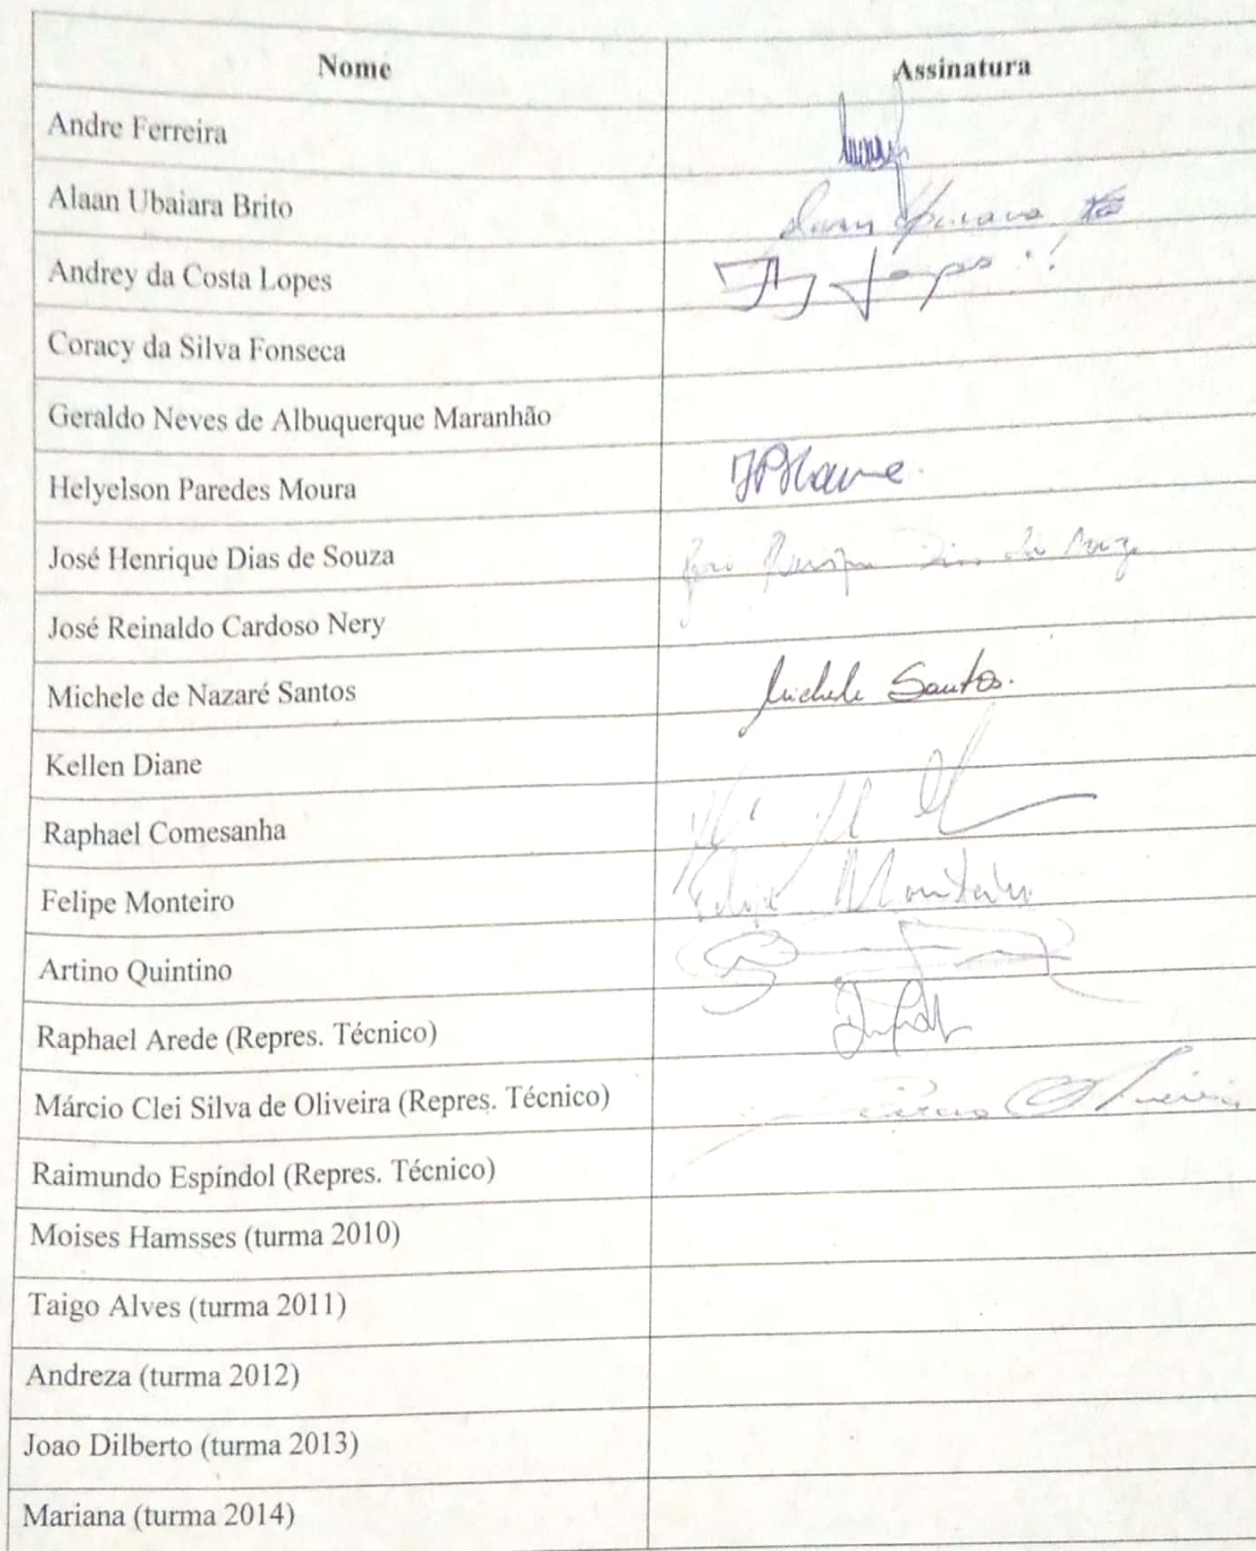 Nome Assinatura
Andre Ferreira
Alaan Ubaiara Brito
Andrey da Costa Lopes
Coracy da Silva Fonseca
Geraldo Neves de Albuquerque Maranhão
Helyelson Paredes Moura
José Henrique Dias de Souza
José Reinaldo Cardoso Nery
Michele de Nazaré Santos Michele Santos.
Kellen Diane
Raphael Comesanha
Felipe Monteiro Felipe Monteiro
Artino Quintino
Raphael Arede (Repres. Técnico)
Márcio Clei Silva de Oliveira (Repres. Técnico)
Raimundo Espíndol (Repres. Técnico)
Moises Hamsses (turma 2010)
Taigo Alves (turma 2011)
Andreza (turma 2012)
Joao Dilberto (turma 2013)
Mariana (turma 2014)